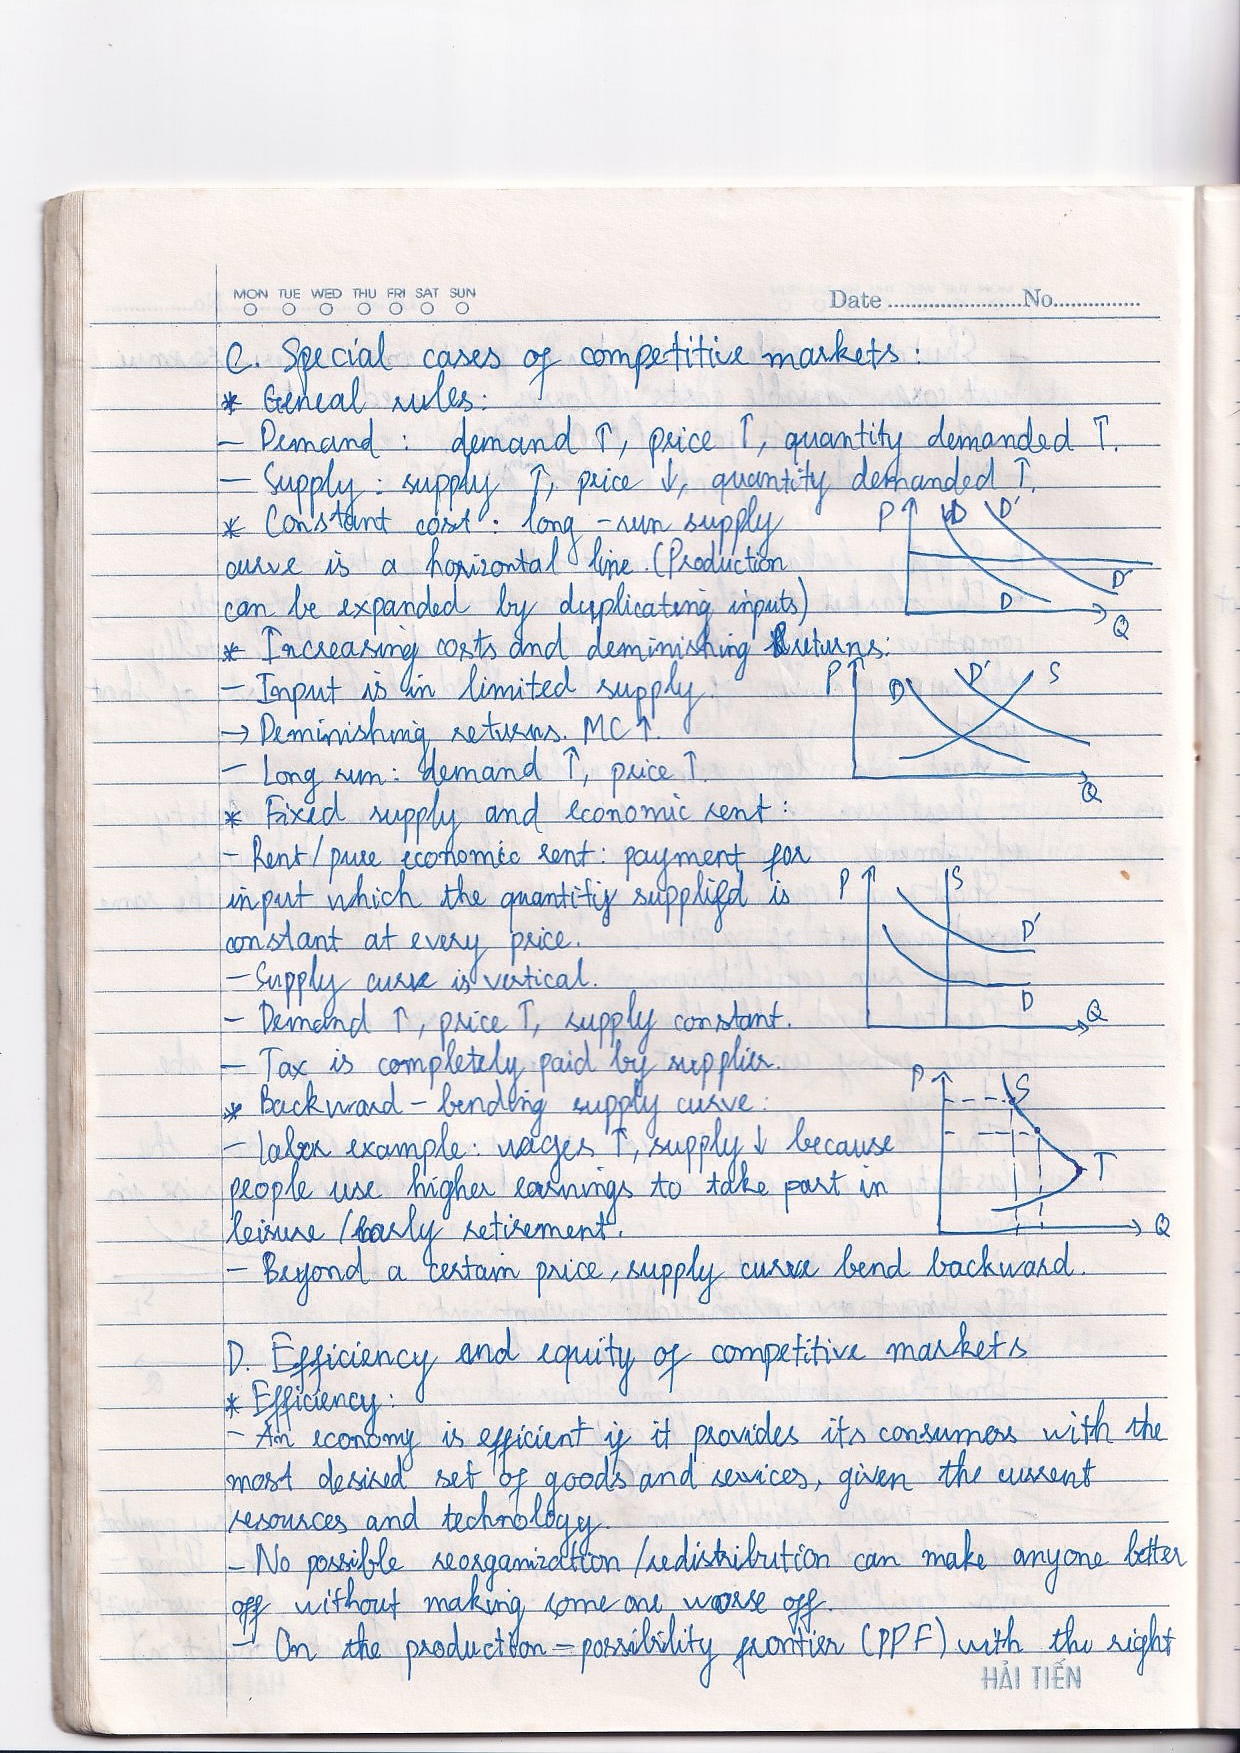 MON TUE WED THU FRI SAT SUN
Date ........................No................
C. Special cases of competitive markets :
* Geneal rules:
- Demand : demand ↑, price ↑, quantity demanded ↑.
- Supply : supply ↑, price ↓, quantity demanded ↑.
* Constant cost : long - run supply
curve is a horizontal line. (Production
can be expanded by duplicating inputs)
P D D'
D D'
Q
* Increasing costs and deminishing Returns:
- Input is in limited supply.
→ Deminishing returns. MC ↑.
- Long run : demand ↑, price ↑.
P D D' S
Q
* Fixed supply and economic rent :
- Rent / pure economic rent : payment for
input which the quantity supplied is
constant at every price.
- Supply curve is vertical.
- Demand ↑, price ↑, supply constant.
- Tax is completely paid by supplier.
P S
D'
D
Q
* Backward - bending supply curve :
- Labor example : wages ↑, supply ↓ because
people use higher earnings to take part in
leisure / early retirement.
- Beyond a certain price, supply curve bend backward.
P S
T
Q
D. Efficiency and equity of competitive markets
* Efficiency :
- An economy is efficient if it provides its consumers with the
most desired set of goods and services, given the current
resources and technology.
- No possible reorganization / redistribution can make anyone better
off without making some one worse off.
- On the production - possibility frontier (PPF) with the right
HẢI TIẾN